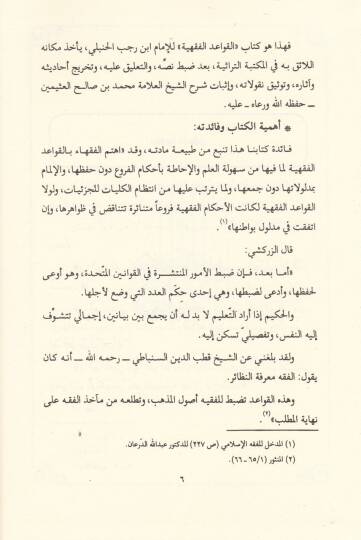 فهذا هو كتاب «القواعد الفقهية» للإمام ابن رجب الحنبلي، يأخذ مكانه
اللائق به في المكتبة التراثية، بعد ضبط نصِّه، والتعليق عليه، وتخريج أحاديثه
وآثاره، وتوثيق نقولاته، وإثبات شرح الشيخ العلامة محمد بن صالح العثيمين
ــ حفظه الله ورعاه ــ عليه.
* أهمية الكتاب وفائدته:
فائدة كتابنا هذا تنبع من طبيعة مادته، وقد «اهتم الفقهاء بالقواعد
الفقهية لما فيها من سهولة العلم والإحاطة بأحكام الفروع دون حفظها، والإلمام
بمدلولاتها دون جمعها، ولما يترتب عليها من انتظام الكليات للجزئيات، ولولا
القواعد الفقهية لكانت الأحكام الفقهية فروعاً متناثرة تتناقض في ظواهرها، وإن
اتفقت في مدلول بواطنها»(١).
قال الزركشي:
«أما بعد، فإن ضبط الأمور المنتشرة في القوانين المتَّحدة، وهو أوعى
لحفظها، وأدعى لضبطها، وهي إحدى حِكَم العدد التي وضع لأجلها.
والحكيم إذا أراد التعليم لا بد له أن يجمع بين بيانين، إجمالي تتشوَّف
إليه النفس، وتفصيليّ تسكن إليه.
ولقد بلغني عن الشيخ قطب الدين السنباطي ــ رحمه الله ــ أنه كان
يقول: الفقه معرفة النظائر.
وهذه القواعد تضبط للفقيه أصول المذهب، وتطلعه من مآخذ الفقه على
نهاية المطلب»(٢).
(١) المدخل للفقه الإسلامي (ص ٢٢٧) للدكتور عبدالله الدّرعان.
(٢) المنثور (١/ ٦٥ - ٦٦).
٦